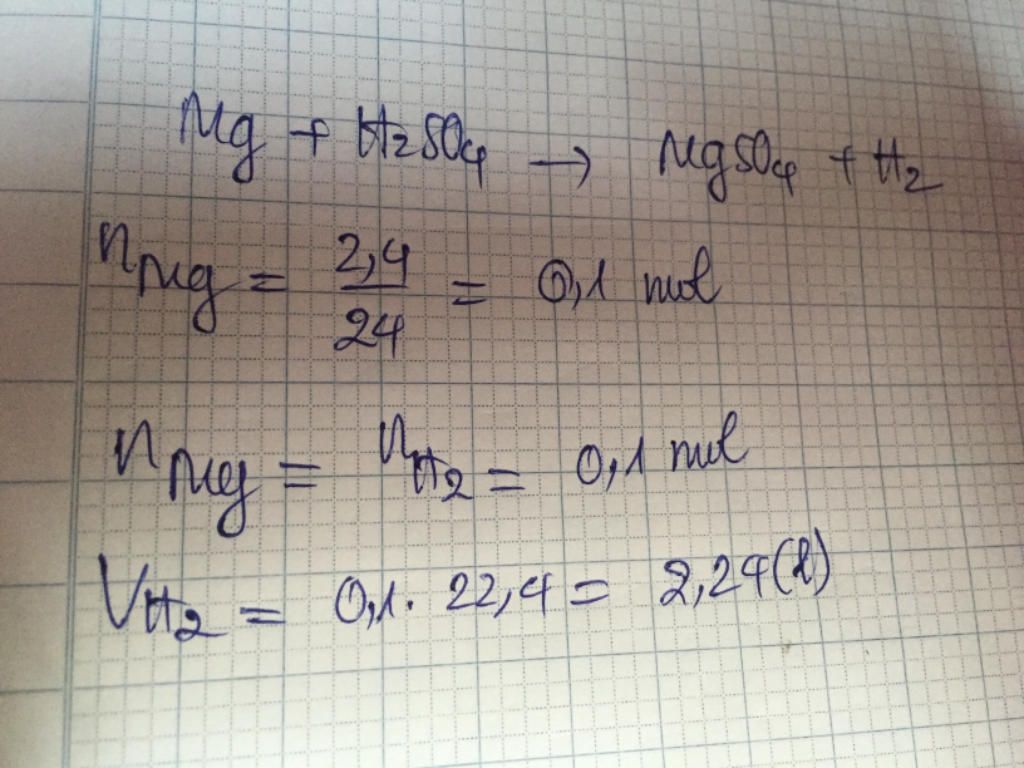 Mg + H₂SO₄ → MgSO₄ + H₂
nMg = 2,4/24 = 0,1 mol
nMg = nH₂ = 0,1 mol
VH₂ = 0,1 . 22,4 = 2,24 (l)